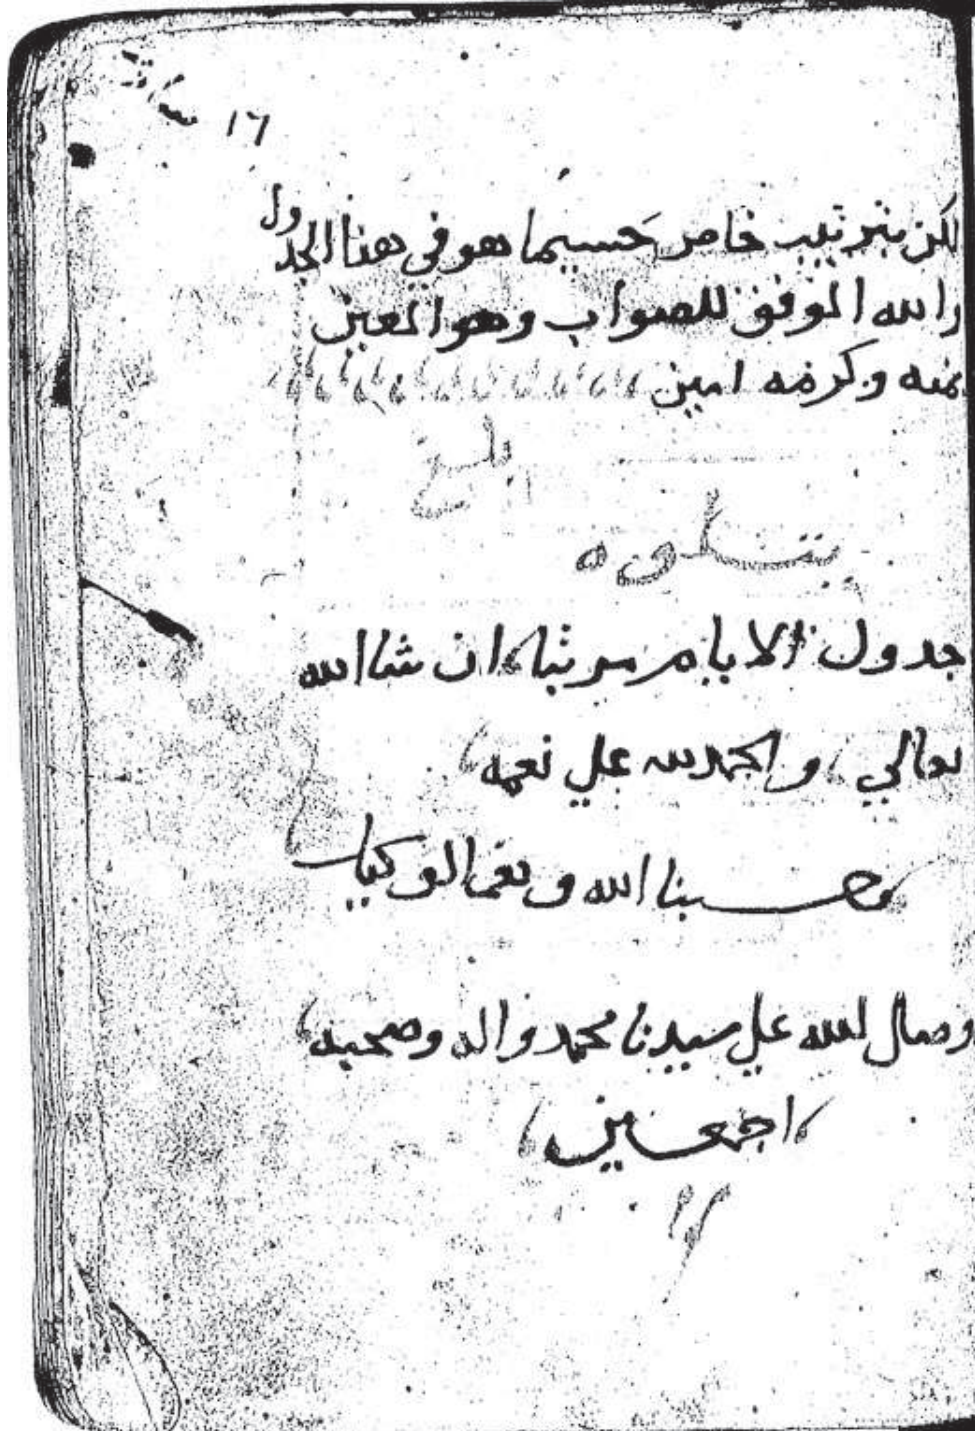 ١٦
لكن بترتيب خاص حسبما هو في هذا الجدول
والله الموفق للصواب وهو المعين
بمنه وكرمه امين
بلغ
يتلوه
جدول الايام مرتبا ان شا الله
تعالي والحمد لله علي نعمه
وحسبنا الله ونعم الوكيل
وصلي الله علي سيدنا محمد واله وصحبه
اجمعين